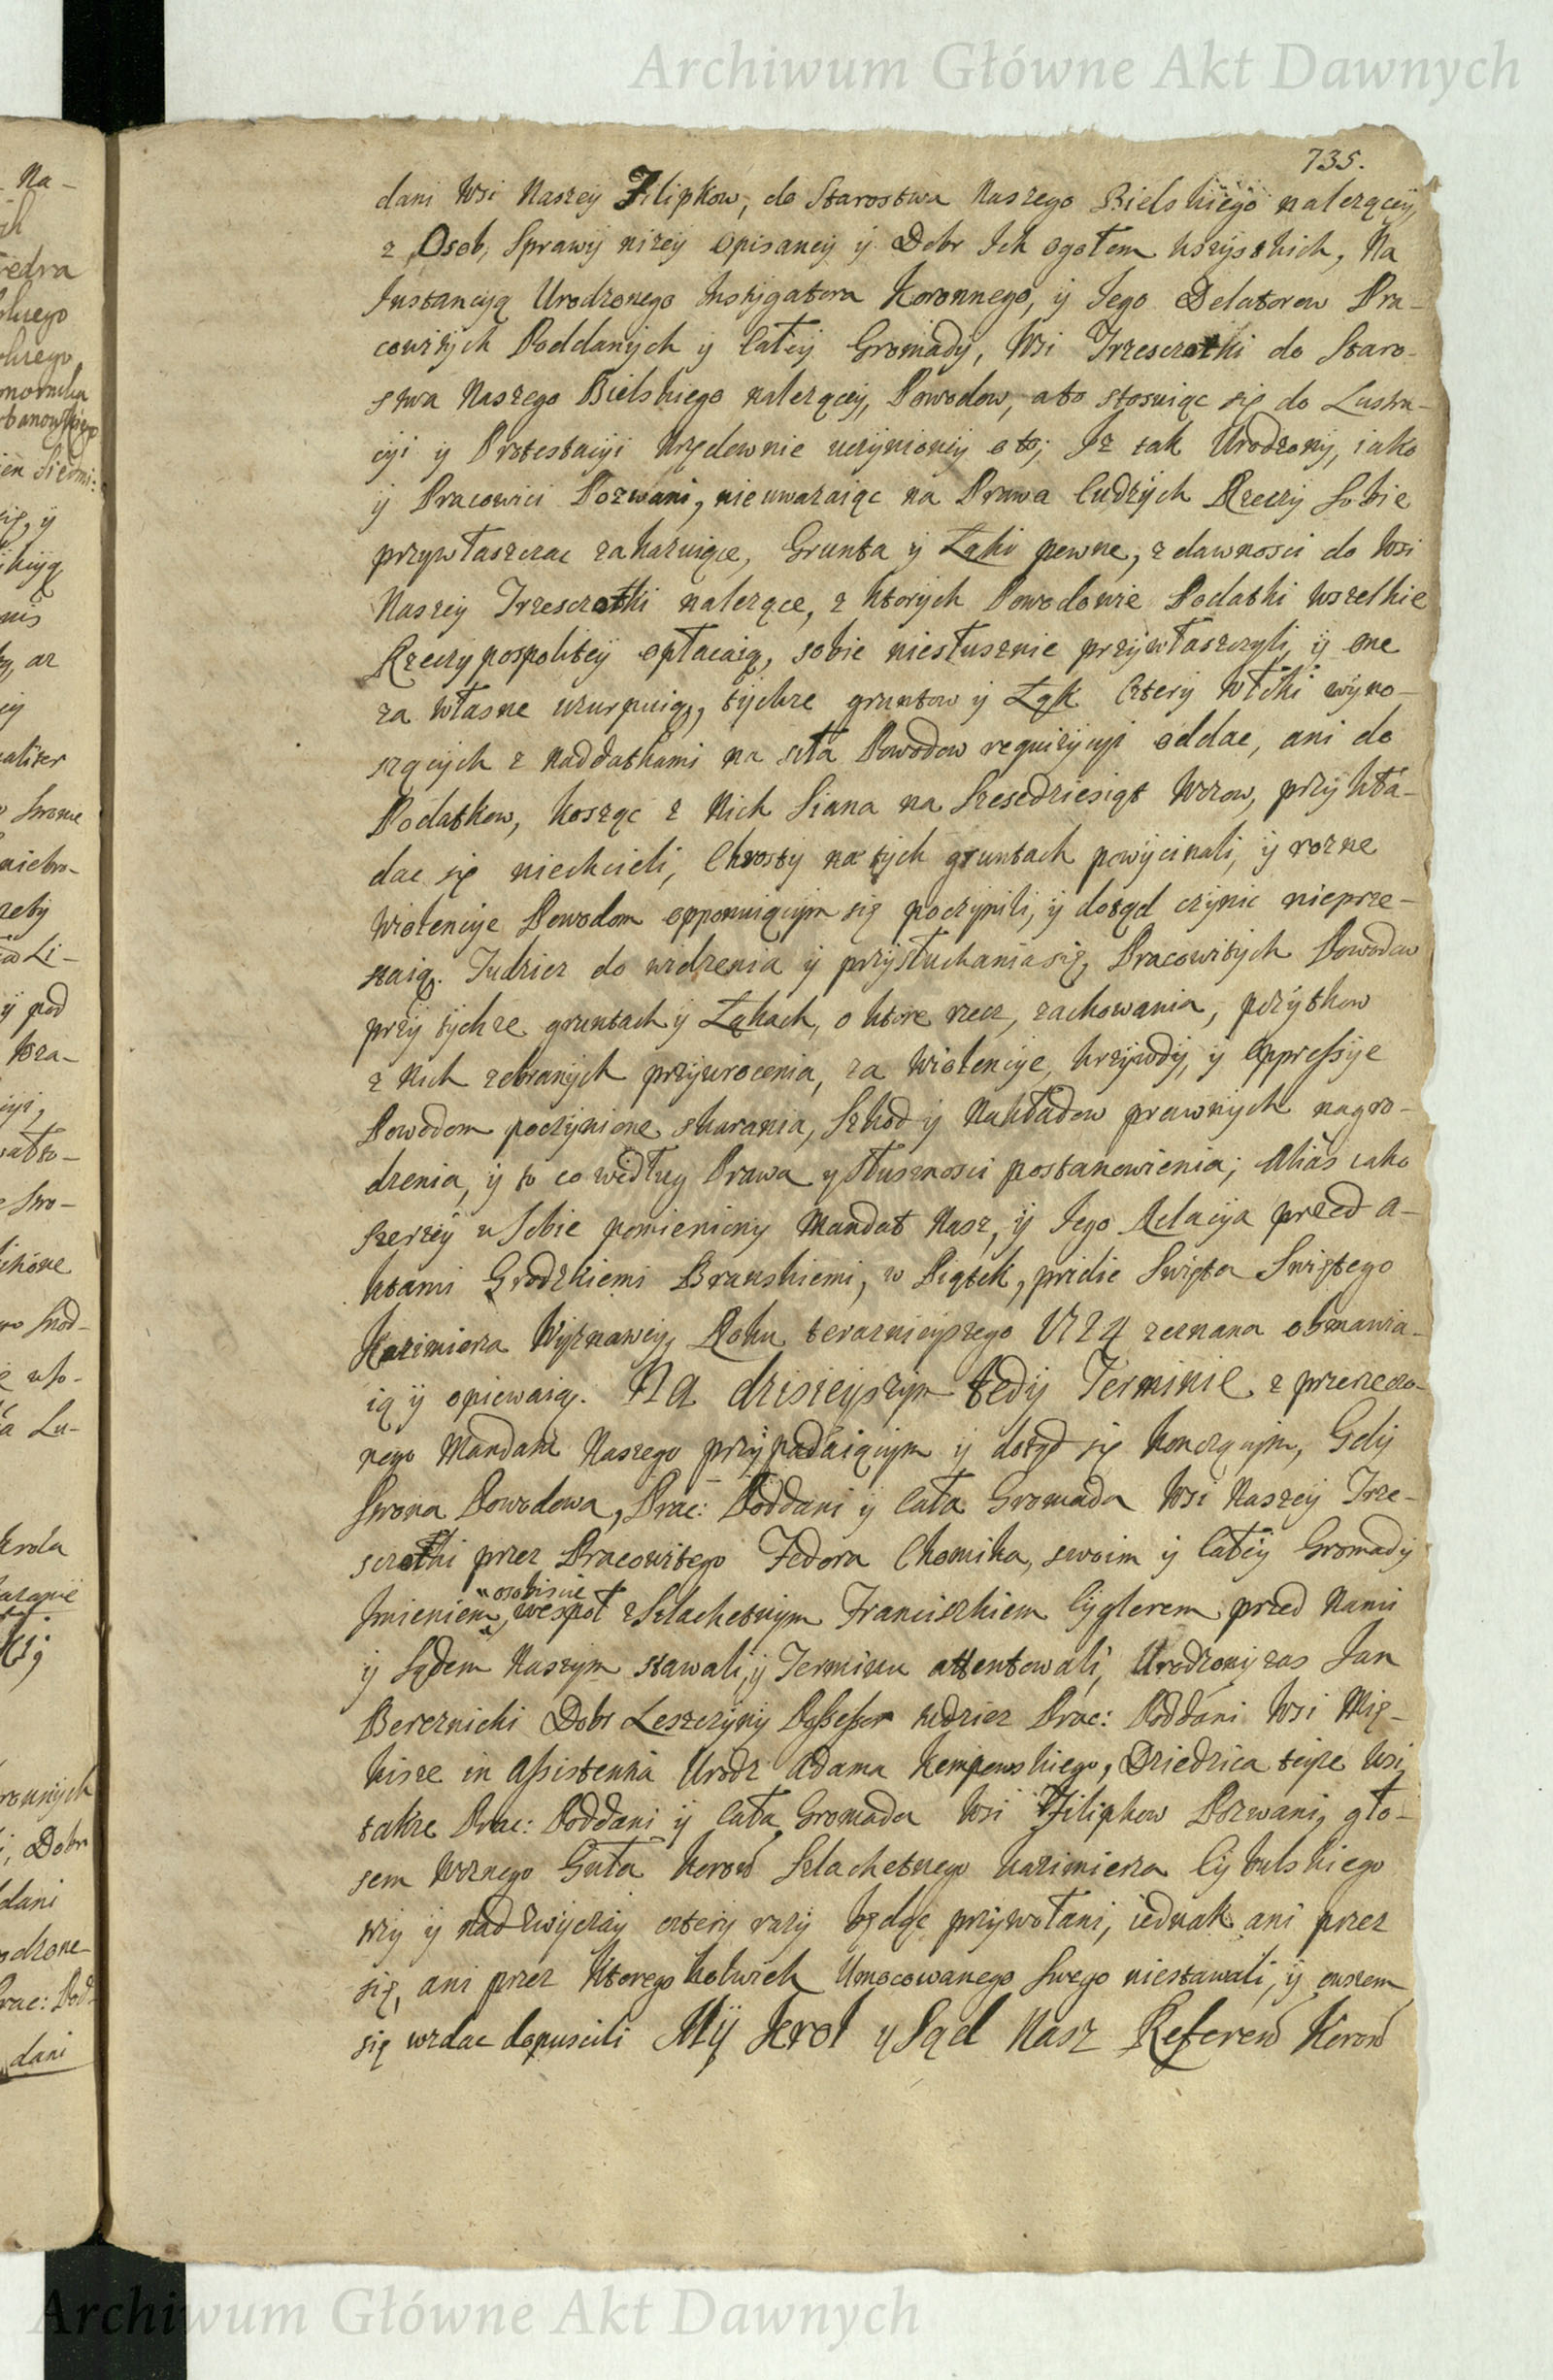 Archiwum Główne Akt Dawnych
735.
dani Wsi Naszey Filipkow, do Starostwa Naszego Bielskiego nalezącey,
z Osob, Sprawy nizey opisaney y Dobr Ich ogołem wszystkich, Na
Instancyą Urodzonego Instygatora Koronnego, y Iego Delatorow Pra-
cowitych Poddanych y Całey Gromady, Wsi Trzesczotki do Staro-
stwa Naszego Bielskiego nalezącey, Powodow, a to stosuiąc się do Lustra-
cyi y Protestacyi Urzędownie uczynioney o to; Iz tak Urodzony, iako
y Pracowici Pozwani, nieuwazaiąc na Prawa Cudzych Rzeczy Sobie
przywłaszczac zakazuiące, Grunta y Łąki pewne, z dawnosci do Wsi
Naszey Trzesczotki nalezące, z ktorych Powodowie Podatki wszelkie
Rzeczypospolitey opłacaią, sobie niesłusznie przywłaszczyli, y one
za własne uzurpuią, tychze gruntow y Łąk Cztery włoki wyno-
szących z naddatkami na Powodow requizycyi oddac, ani do
Podatkow, kosząc z Nich Siana na Szescdziesiąt Wozow, przykła-
dac się niechcieli, Chrosty na tych gruntach powycinali, y rozne
Wiolencye Powodom opponuiącym się poczynili, y dotąd czynic nieprze-
staią. Tudziez do widzenia y przysłuchania się, Pracowitych Powodow
przy tychze gruntach y Łąkach, o ktore rzecz, zachowania, pozytkow
z Nich zebranych przywrocenia, za Wiolencye, krzywdy, y oppressye
Powodom poczynione skarania, Szkod y Nakładow prawnych nagro-
dzenia, y to co według Prawa y Słusznosci postanowienia; Alias iako
szerzey w Sobie pomieniony Mandat Nasz, y Iego Relacya przed A-
ktami Grodzkiemi Branskiemi, w Piątek, pridie Swięta Swiętego
Kazimierza Wyznawcy, Roku teraznieyszego 1724 zeznana obmawia-
ią y opiewaią. Na dzisieyszym tedy Terminie z przerzeczo-
nego Mandatu Naszego przypadaiącym y dotąd się konczącym, Gdy
Strona Powodowa, Prac: Poddani y Cała Gromada Wsi Naszey Trze-
sczotki przez Pracowitego Fedora Chomika, swoim y Całey Gromady
Imieniem, osobiscie wespoł z Szlachetnym Franciszkiem Cyglerem przed Nami
y Sądem Naszym stawali, y Terminu attentowali, Urodzony zas Jan
Bereznicki Dobr Leszczyny Possessor tudziez Prac: Poddani Wsi Mię-
kisze in assistentia Urodz Adama Kempowskiego, Dziedzica teyze Wsi,
takze Prac: Poddani y Cała Gromada Wsi Filipkow Pozwani, gło-
sem Woznego Gnła Koron Szlachetnego Kazimierza Cybulskiego
trzy y nad zwyczay cztery razy będąc przywołani, iednak ani przez
się, ani przez Ktoregokolwiek Umocowanego Swego niestawali, y owszem
się wzdac dopuscili My Krol y Sąd Nasz Referen Koron
Archiwum Główne Akt Dawnych